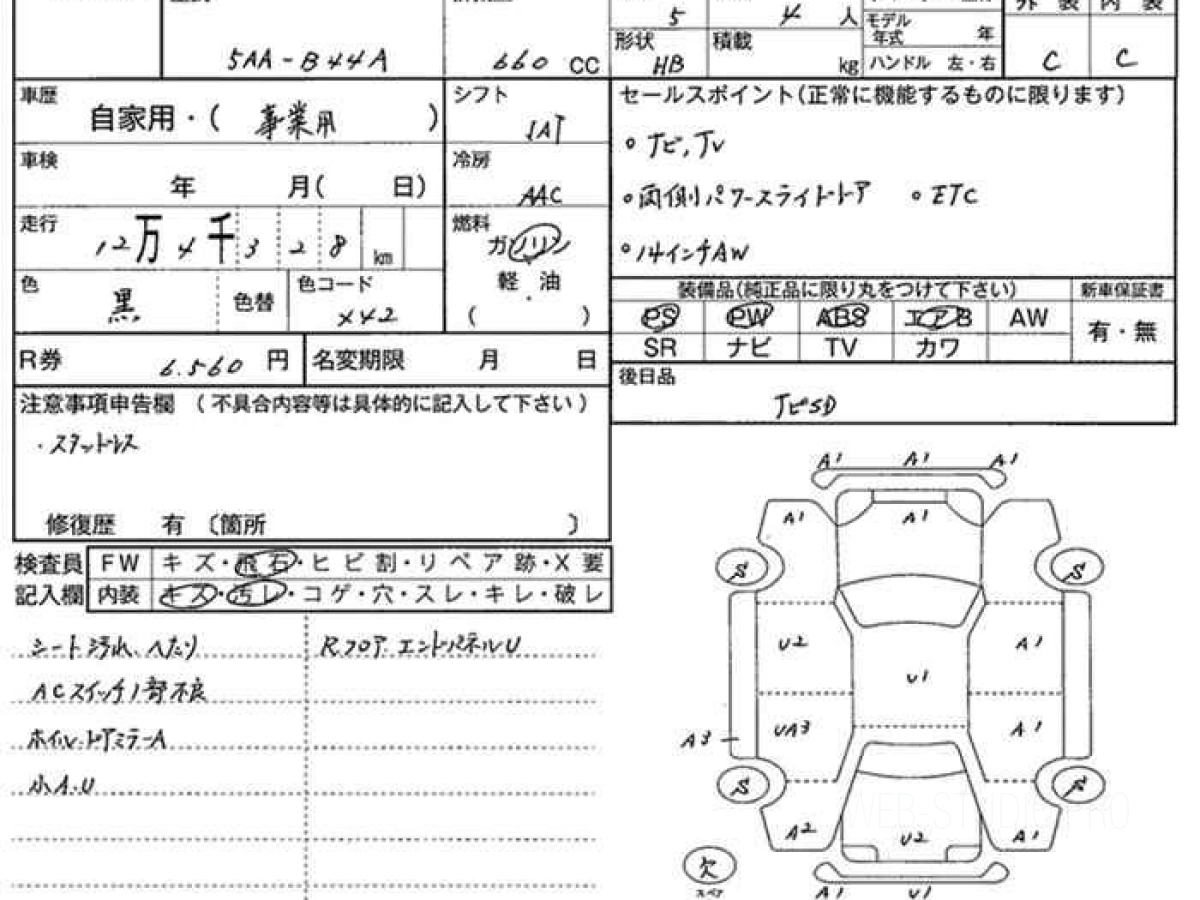 5 4 人
外装 内装
5AA-B44A 660 CC
形状 HB 積載 kg
モデル年式 年
ハンドル 左・右 C C
車歴 自家用・( 事業用 )
シフト IAT
セールスポイント(正常に機能するものに限ります)
。ナビ,TV
。両側パワースライドドア 。ETC
。14インチAW
車検 年 月( 日)
冷房 AAC
走行 12万4千328km
燃料 ガソリン
軽・油
( )
色 黒 色替 色コード X42
装備品(純正品に限り丸をつけて下さい) 新車保証書
PS PW ABS エアB AW 有・無
SR ナビ TV カワ
R券 6.560 円 名変期限 月 日
後日品
ナビSD
注意事項申告欄 (不具合内容等は具体的に記入して下さい)
・スタッドレス
修復歴 有〔箇所 〕
検査員 FW キズ・飛石・ヒビ割・リペア跡・X要
記入欄 内装 キズ・汚レ・コゲ・穴・スレ・キレ・破レ
シート汚れ、へたり Rフロア.エンドパネルU
ACスイッチ1部不良
ホイル.ドアミラーA
小A.U
A1 A1 A1
A1 A1
S S
U2 A1
U1
A3 UA3 A1
S S
A2 U2 A1
欠
スペア
A1 U1
WEB.STUDIO.PRO